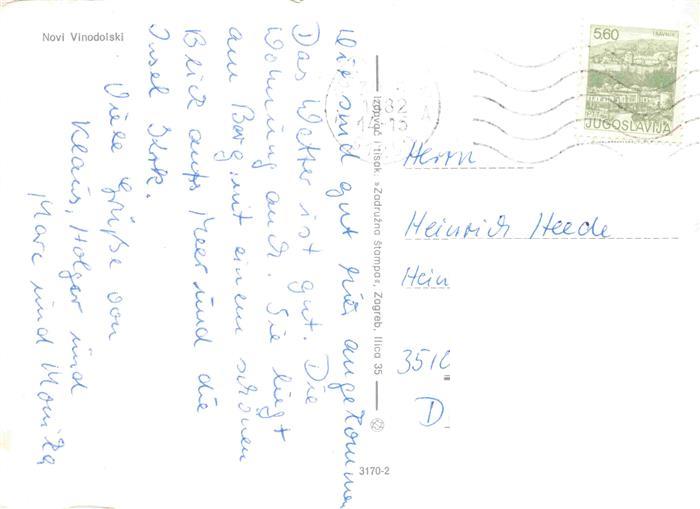 Novi Vinodolski
Wir sind gut hier angekommen
Das Wetter ist gut. Die
Wohnung auch. Sie liegt
am Berg, mit einem schönen
Blick aufs Meer und die
Insel Krk.
Viele Grüße von
Klaus, Holger und
Marc und Monika
Izdavač i tisak: »Zadružna štampa«, Zagreb, Ilica 35
3170-2
5.60
TRAVNIK
JUGOSLAVIJA
82
14-15
A
Herrn
Heinrich Heede
Hein
3510
D